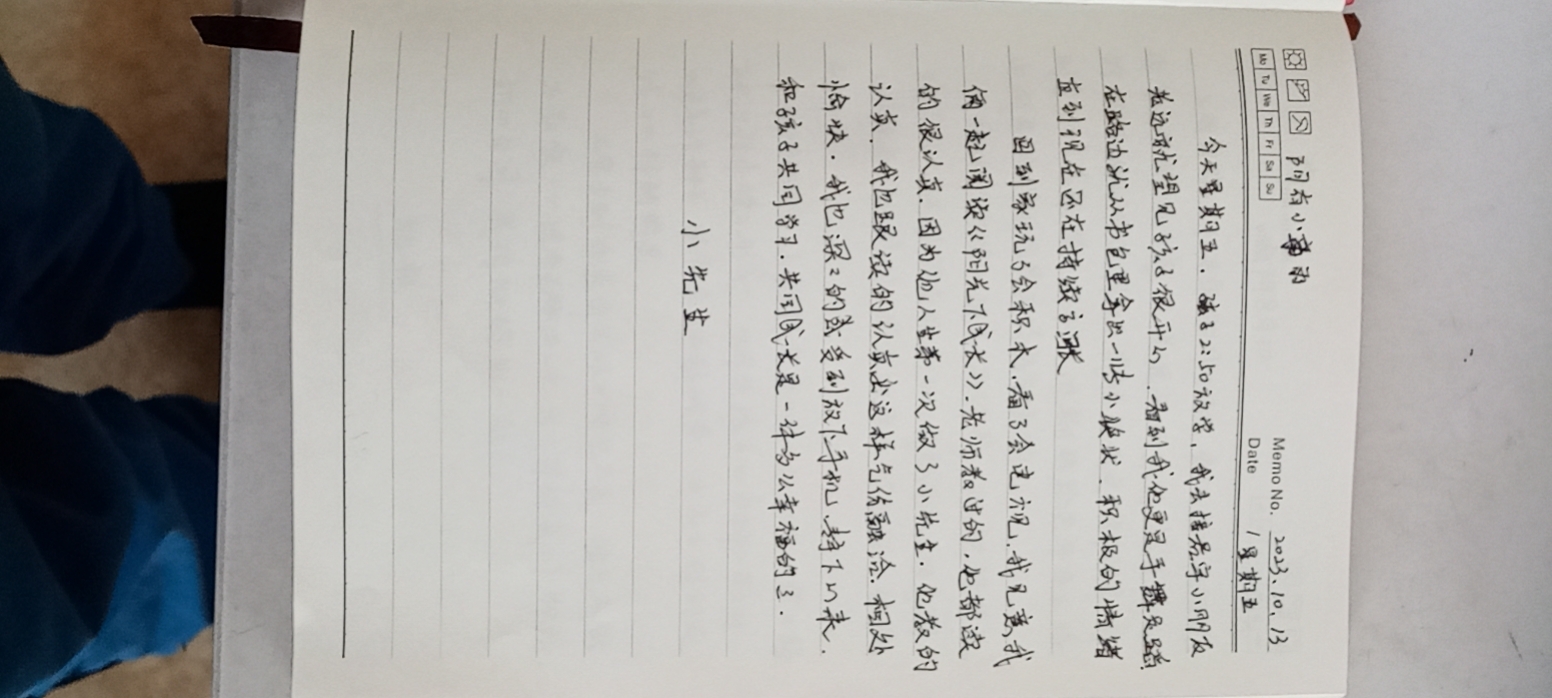 阴有小雨
Memo No. 2023.10.13
Mo Tu We Th Fr Sa Su
Date / 星期五
今天星期五. 孩子2:50放学, 我去接晨宇小朋友
老远就望见孩子很开心. 看到我他更是手舞足蹈
在路边就从书包里拿出一张小奖状. 积极的情绪
直到现在还在持续高涨
回到家玩了会积木. 看了会电视. 我见意我
俩一起阅读《阳光下成长》. 老师教过的, 他都读
的很认真. 因为他人生第一次做了小先生. 他教的
认真. 我也跟读的认真 这样气氛融洽. 相处
愉快. 我也深深的感受到放下手机, 静下心来.
和孩子共同学习. 共同成长是一件多么幸福的事.
小先生